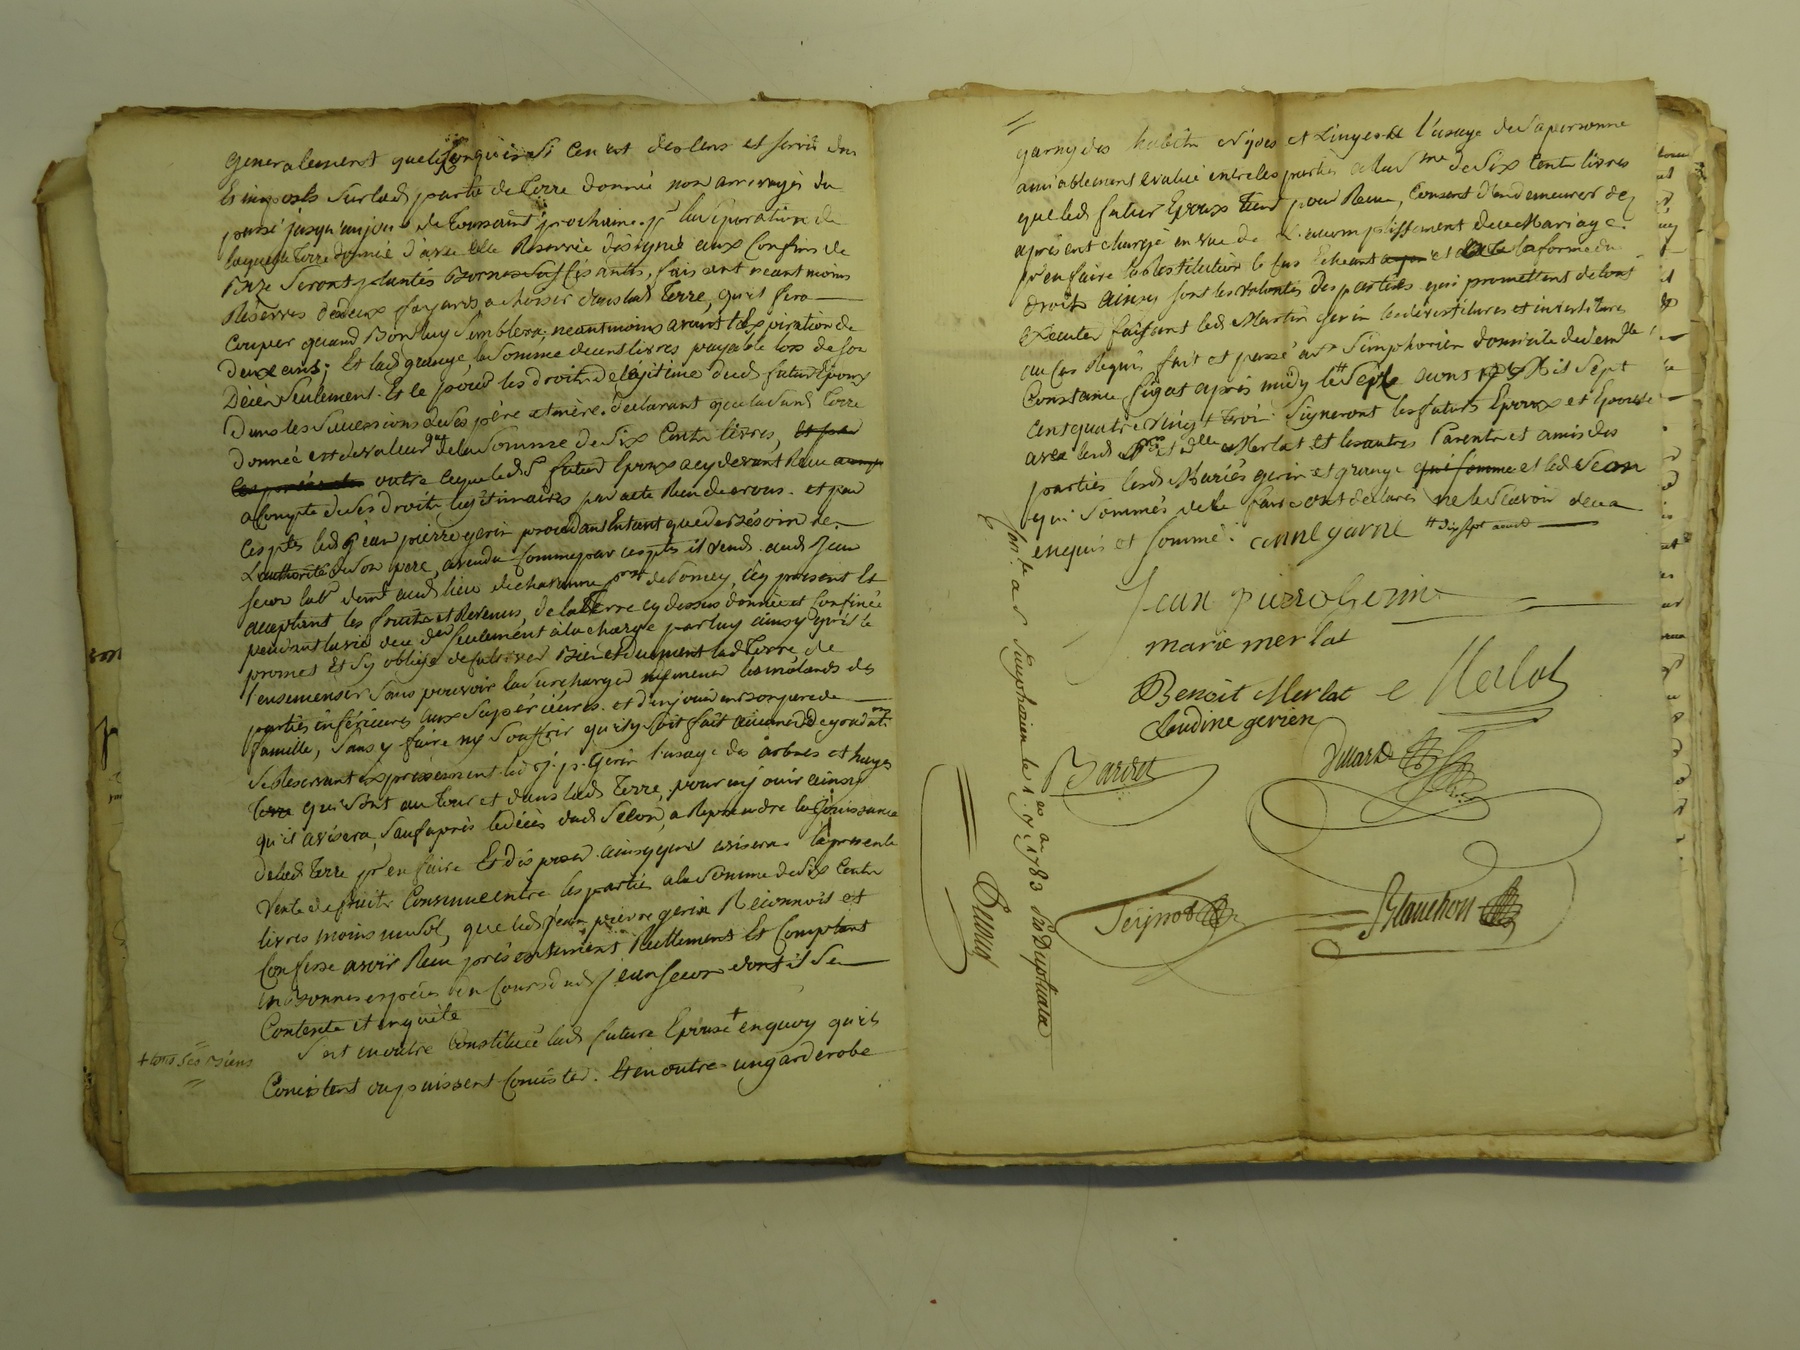 generalement quelconques si cen'est des lens et servis des
Et imposts sur lad. partie de Terre donnée non arreragés du
passé jusqu'au jour de Toussaint prochaine. pr la separation de
laquelle Terre donnée d'avec celle Reservée designée aux Confins de
Bize Seront plantés Bornes Suffisantes, faisant neantmoins
Reserves de deux fayards a choisir dans lad. Terre, qu'il fera
Couper quand Bon luy Semblera, neantmoins avant l'Expiration de
Deux ans; Et lad. grange la Somme de cens livres payable lors de son
Décès Seulement. Et le pour les droits de legitime dud. futur Epoux
Dans les Successions de Ses père et mère. declarant que lasusd. Terre
Donnée est de valleur de la Somme de Six Cents livres, Et par
outre ce que led. Sr futur Epoux a cy devant Reçu
a Compte de Ses droits legitimaires par acte Reçu de nous. et par
Ces ptes led. Jean pierre gerin procedant Entant que de Bésoin de
L'authorité de Son père, a vendu Comme par ces ptes il vend. aud. Jean
Secon labr demt aud. lieu de chavanne pssse de Poncey, icy present Et
acceptant les fruits et Revenus, de la Terre cy dessus donnée et Confinée
pendant la vie de ce der Seulement à la charge par luy ainsy qu'il le
promet Et S'y oblige de cultiver Bien et duement lad. Terre de
l'ensemenser Sans pouvoir la Surcharger ny mener les mélands des
parties inférieures aux Supérieures. et d'en jouir en bon pere de
famille, Sans y faire ny Souffrir qu'il y Soit fait aucunes Degradat.ns
Se Reservant expressement led. J. p. Gerin l'usage des arbres et hayes
Terre qui Sont au Tour et dans lad. Terre, pour en jouir ainsy
qu'il avisera, Sauf après le décès dud. Secon, a Reprendre la Jouissance
de lad. Terre pr en faire Et disposer ainsy qu'il avisera. la presente
Vente de fruits Convenue entre les parties a la Somme de Six Cents
livres moins un Sol, que led. Jean pierre gerin Reconnoit et
Confesse avoir Reçu présentement Réellement Et Comptant
en Bonnes espèces du Cours dud. Jean Secon dont il Se
Contente et en quitte
S'est en outre Constituée lad. future Epouse + en quoy qu'ils
+ tous Ses Biens
Consistent ou puissent Consister. Et en outre un garderobe
garny des habits Nipes et Linges a l'usage de Sa personne
amiablement evalué entre les parties a la Sme de Six Cents livres
que led. futur Epoux Tient pour Reçu, Consent d'en demeurer dez
apresent chargé en vue de L'accomplissement de ce Mariage
pr en faire la Restitution le Cas Echeant et la forme du
droit Ainsy Sont les volontés des parties qui promettent de tout
executer faisant led. Martin gerin les devestitures et investitures
au Cas Requis fait et passé a St Simphorien domicile de demlle
Constance figat après midy le Sept aoust Mil Sept
Cent quatre Vingt Troi Signeront les futurs Epoux et Epouse
avec lesd. Srs et dlle Merlat et les autres Parents et amis des
parties lesd. Mariés gerin et grange qui Somme et led. Secon
qui Sommés de le faire ont declarés ne le Scavoir de ce
enquis et Sommé. anne garne
Jean pierre Gerin
marie merlat
Benoit Merlat Merlat
Claudine gerien
Bardet
Seignol Blanchon
Con.le a St Simphorien le 1er 7bre 1783 Duplicata